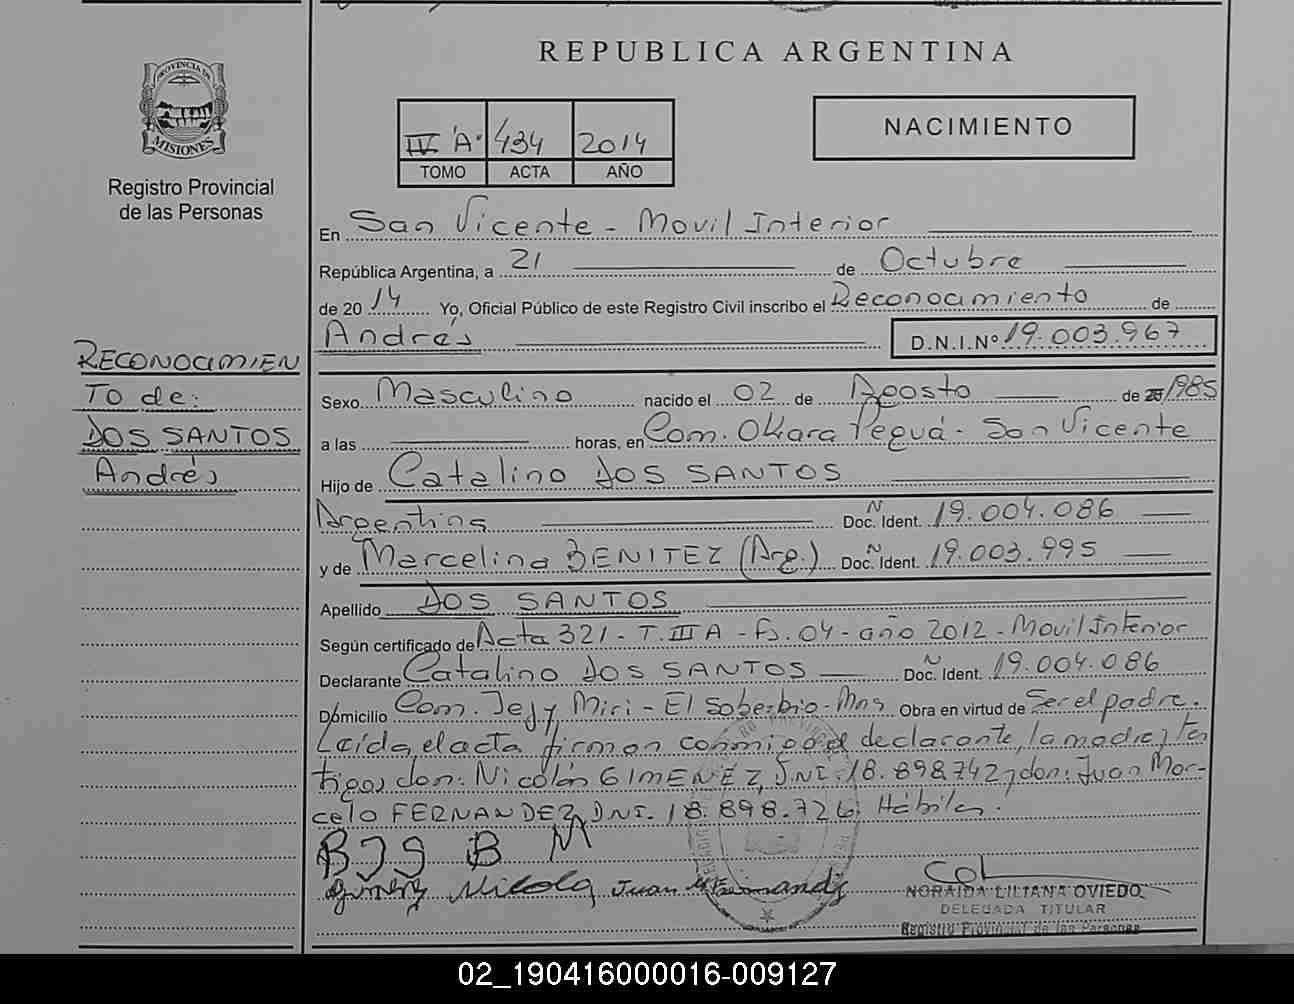 REPUBLICA ARGENTINA
PROVINCIA DE
MISIONES
Registro Provincial
de las Personas
IV "A" 434 2014
TOMO ACTA AÑO
NACIMIENTO
En San Vicente - Movil Interior
República Argentina, a 21 de Octubre
de 2014 Yo, Oficial Público de este Registro Civil inscribo el Reconocimiento de
Andrés D.N.I.Nº 19.003.967
RECONOCIMIEN
TO de:
DOS SANTOS
Andrés
Sexo Masculino nacido el 02 de Agosto de 1985
a las horas, en Com. Okara Peguá - San Vicente
Hijo de Catalino DOS SANTOS
Argentina Doc. Ident. N 19.004.086
y de Marcelina BENITEZ (Arg.) Doc. Ident. N 19.003.995
Apellido DOS SANTOS
Según certificado de Acta 321 - T. III A - Fs. 04 - año 2012 - Movil Interior
Declarante Catalino DOS SANTOS Doc. Ident. N 19.004.086
Domicilio Com. Jejy Miri - El Soberbio - Mns Obra en virtud de Ser el padre.
Leída el acta firman conmigo el declarante, la madre, tes
tigos don: Nicolás GIMENEZ, D.N.I. 18.898.742 y don: Juan Mar-
celo FERNANDEZ, DNI. 18.898.726. Hábiles.
BJS B M
Gimenez Nicolas Juan M Fernandz
NORAIDA LILIANA OVIEDO
DELEGADA TITULAR
Registro Provincial de las Personas
02_190416000016-009127